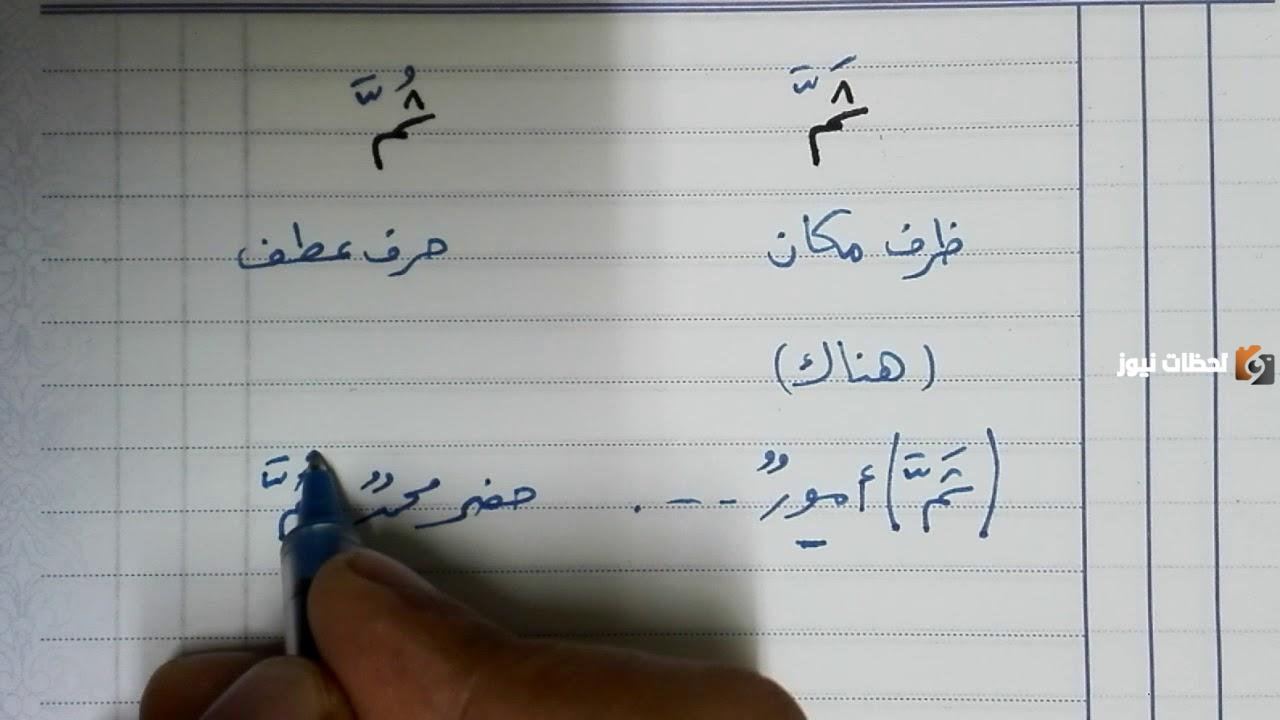 ثَمَّ ثُمَّ
ظرف مكان حرف عطف
(هناك)
(ثَمَّ) أمورٌ - - - . حضر محمدٌ ثُمَّ
لحظات نيوز